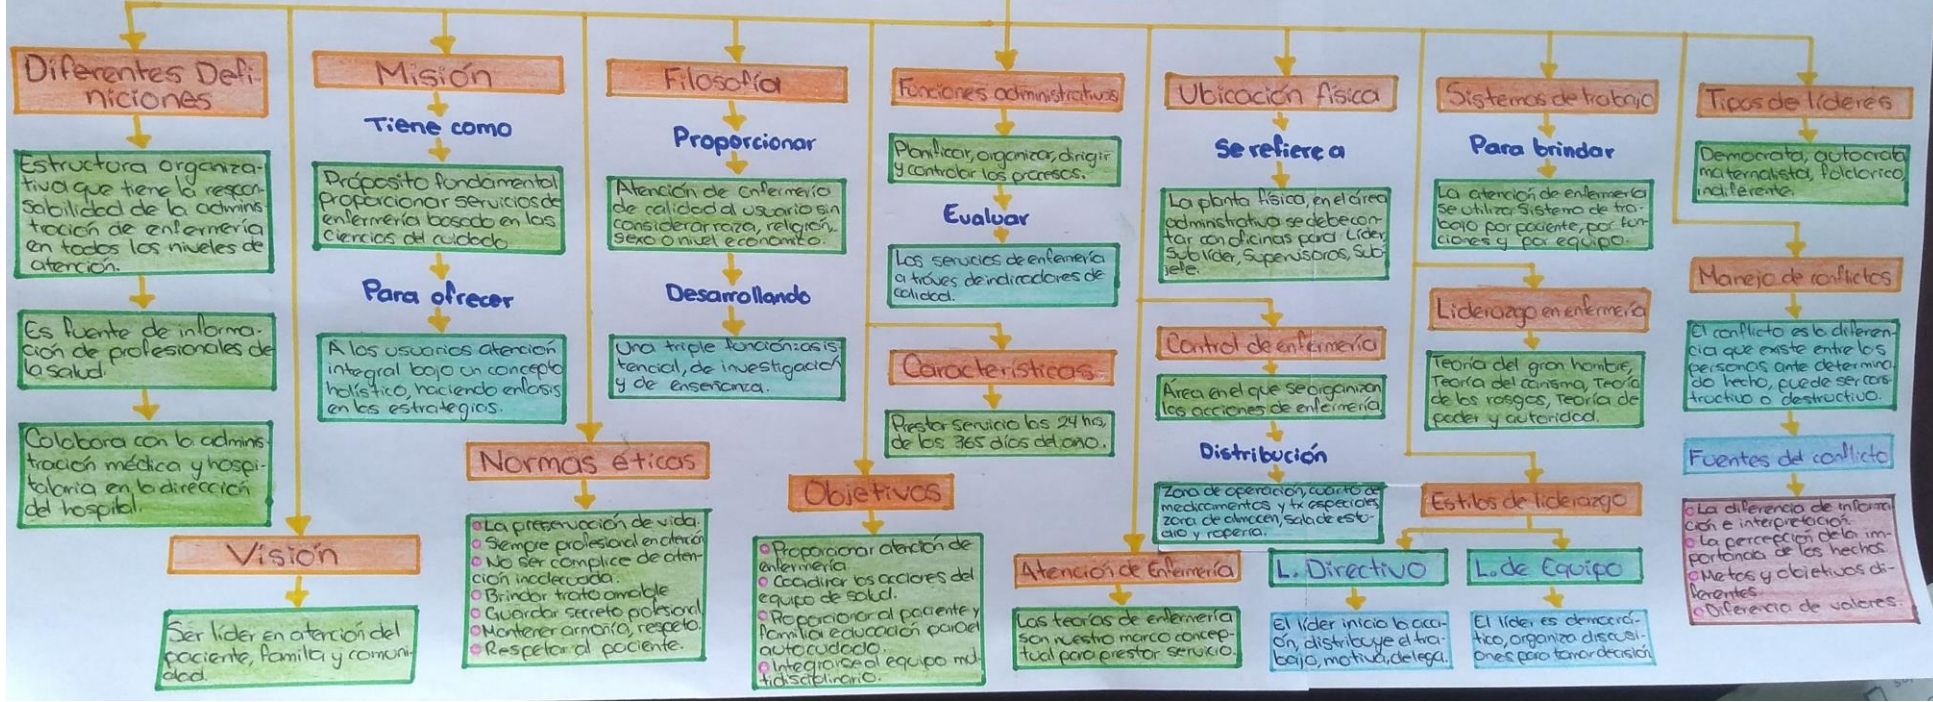 Diferentes Defi-
niciones
Estructura organiza-
tiva que tiene la respon-
sabilidad de la adminis
tración de enfermería
en todos los niveles de
atención.
Es fuente de informa-
ción de profesionales de
la salud.
Colabora con la adminis
tración médica y hospi-
talaria en la dirección
del hospital.
Visión
Ser líder en atención del
paciente, familia y comuni-
dad.
Misión
Tiene como
Próposito fundamental
proporcionar servicios de
enfermería basado en las
ciencias del cuidado.
Para ofrecer
A los usuarios atención
integral bajo un concepto
holístico, haciendo enfasis
en los estrategias.
Normas éticas
La preservación de vida.
Siempre profesional en atención
No ser complice de aten-
ción inadecuada.
Brindar trato amable
Guardar secreto profesional
Mantener armonía, respeto.
Respetar al paciente.
Filosofía
Proporcionar
Atención de enfermería
de calidad al usuario sin
considerar raza, religión,
sexo o nivel económico.
Desarrollando
Una triple función: asis
tencial, de investigación
y de enseñanza.
Objetivos
Proporcionar atención de
enfermería
Coordinar las acciones del
equipo de salud.
Proporcionar al paciente y
familia educación para el
autocuidado.
Integrarse al equipo mul
tidisciplinario.
Funciones administrativas
Planificar, organizar, dirigir
y controlar los procesos.
Evaluar
Los servicios de enfermería
a tráves de indicadores de
calidad.
Características
Prestar servicio las 24 hrs,
de los 365 días del año.
Atención de Enfermería
Las teorías de enfermería
son nuestro marco concep-
tual para prestar servicio.
Ubicación física
Se refiere a
La planta física, en el área
administrativa se debe con-
tar con oficinas para Líder,
Sublíder, Supervisoras, Sub-
jefe.
Control de enfermería
Área en el que se organizan
las acciones de enfermería
Distribución
Zona de operación, cuarto de
medicamentos y tx especiales
zona de almacen, sala de estu-
dio y ropería.
Sistemas de trabajo
Para brindar
La atención de enfermería
se utiliza Sistema de tra-
bajo por paciente, por fun-
ciones y por equipo.
Liderazgo en enfermería
Teoría del gran hombre,
Teoría del carisma, Teoría
de los rasgos, Teoría de
poder y autoridad.
Estilos de liderazgo
L. Directivo
El líder inicia la acci-
ón, distribuye el tra-
bajo, motiva, delega.
L. de Equipo
El líder es democrá-
tico, organiza discusi-
ones para tomar decisión
Tipos de líderes
Democrata, autocrata
maternalista, folclorico,
indiferente.
Manejo de conflictos
El conflicto es la diferen-
cia que existe entre las
personas ante determina
do hecho, puede ser cons
tructivo o destructivo.
Fuentes del conflicto
La diferencia de informa
ción e interpretación.
La percepción de la im-
portancia de los hechos.
Metas y objetivos di-
ferentes.
Diferencia de valores.